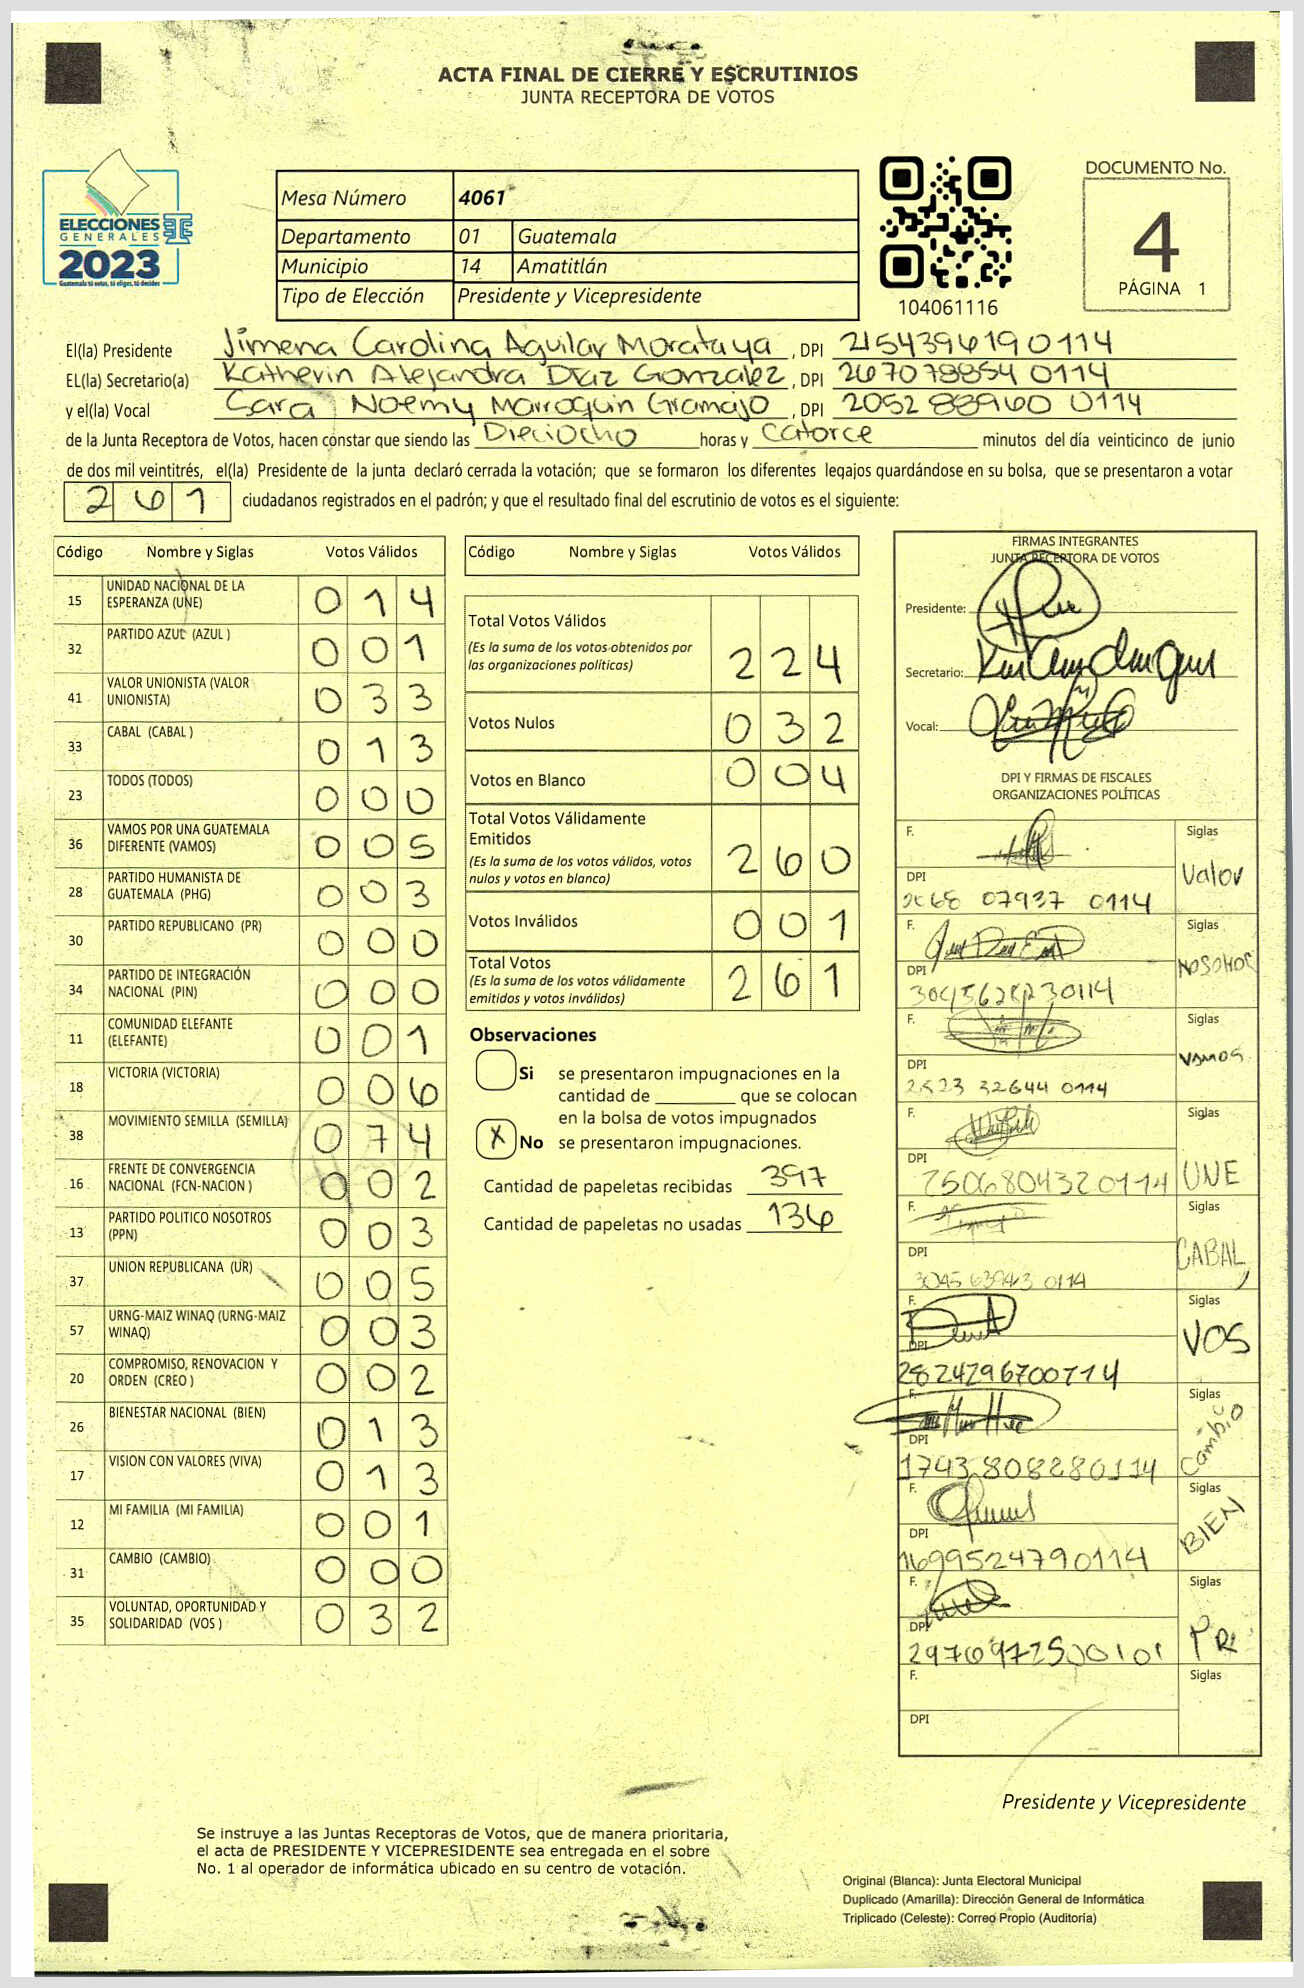 ACTA FINAL DE CIERRE Y ESCRUTINIOS
JUNTA RECEPTORA DE VOTOS
ELECCIONES
GENERALES
2023
Guatemala tú votas, tú eliges, tú decides
Mesa Número 4061
Departamento 01 Guatemala
Municipio 14 Amatitlán
Tipo de Elección Presidente y Vicepresidente
104061116
DOCUMENTO No.
4
PÁGINA 1
El(la) Presidente Jimena Carolina Aguilar Morataya , DPI 215439619 0114
EL(la) Secretario(a) Katherin Alejandra Diaz Gonzalez , DPI 267078854 0114
y el(la) Vocal Sara Noemy Marroquin Gramajo , DPI 2052 88960 0114
de la Junta Receptora de Votos, hacen constar que siendo las Dieciocho horas y catorce minutos del día veinticinco de junio
de dos mil veintitrés, el(la) Presidente de la junta declaró cerrada la votación; que se formaron los diferentes legajos guardándose en su bolsa, que se presentaron a votar
261 ciudadanos registrados en el padrón; y que el resultado final del escrutinio de votos es el siguiente:
Código Nombre y Siglas Votos Válidos
15 UNIDAD NACIONAL DE LA ESPERANZA (UNE) 014
32 PARTIDO AZUL (AZUL ) 001
41 VALOR UNIONISTA (VALOR UNIONISTA) 033
33 CABAL (CABAL ) 013
23 TODOS (TODOS) 000
36 VAMOS POR UNA GUATEMALA DIFERENTE (VAMOS) 005
28 PARTIDO HUMANISTA DE GUATEMALA (PHG) 003
30 PARTIDO REPUBLICANO (PR) 000
34 PARTIDO DE INTEGRACIÓN NACIONAL (PIN) 000
11 COMUNIDAD ELEFANTE (ELEFANTE) 001
18 VICTORIA (VICTORIA) 006
38 MOVIMIENTO SEMILLA (SEMILLA) 074
16 FRENTE DE CONVERGENCIA NACIONAL (FCN-NACION ) 002
13 PARTIDO POLITICO NOSOTROS (PPN) 003
37 UNION REPUBLICANA (UR) 005
57 URNG-MAIZ WINAQ (URNG-MAIZ WINAQ) 003
20 COMPROMISO, RENOVACION Y ORDEN (CREO ) 002
26 BIENESTAR NACIONAL (BIEN) 013
17 VISION CON VALORES (VIVA) 013
12 MI FAMILIA (MI FAMILIA) 001
31 CAMBIO (CAMBIO) 000
35 VOLUNTAD, OPORTUNIDAD Y SOLIDARIDAD (VOS ) 032
Código Nombre y Siglas Votos Válidos
Total Votos Válidos 224
(Es la suma de los votos obtenidos por
las organizaciones políticas)
Votos Nulos 032
Votos en Blanco 004
Total Votos Válidamente
Emitidos 260
(Es la suma de los votos válidos, votos
nulos y votos en blanco)
Votos Inválidos 001
Total Votos 261
(Es la suma de los votos válidamente
emitidos y votos inválidos)
Observaciones
Si se presentaron impugnaciones en la
cantidad de ________ que se colocan
en la bolsa de votos impugnados
X No se presentaron impugnaciones.
Cantidad de papeletas recibidas 397
Cantidad de papeletas no usadas 136
FIRMAS INTEGRANTES
JUNTA RECEPTORA DE VOTOS
Presidente:
Secretario:
Vocal:
DPI Y FIRMAS DE FISCALES
ORGANIZACIONES POLÍTICAS
F. Siglas Valor
DPI 07937 0114
F. Siglas
DPI
F. Siglas VAMOS
DPI 32644 0114
F. Siglas UNE
DPI 2506804320114
F. Siglas CABAL
DPI
F. Siglas VOS
DPI 2824296700114
F. Siglas Cambio
DPI 1743808280114
F. Siglas BIEN
DPI 1699524790114
F. Siglas
DPI
F. Siglas
DPI
Presidente y Vicepresidente
Se instruye a las Juntas Receptoras de Votos, que de manera prioritaria,
el acta de PRESIDENTE Y VICEPRESIDENTE sea entregada en el sobre
No. 1 al operador de informática ubicado en su centro de votación.
Original (Blanca): Junta Electoral Municipal
Duplicado (Amarilla): Dirección General de Informática
Triplicado (Celeste): Correo Propio (Auditoría)